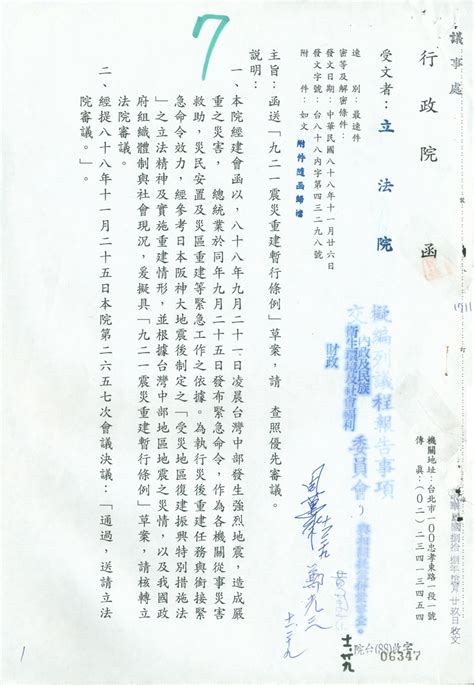 議事處
行政院 函
機關地址：台北市一００忠孝東路一段一號
傳 真：(０二)二三四一三四五四
受文者：立法院
速 別：最速件
密等及解密條件：
發文日期：中華民國八十八年十一月廿六日
發文字號：台八十八內字第四三二九八號
附 件：如文
附件隨函歸檔
擬編列議程報告事項
交
內政及民族
財政
委員會
主旨：函送「九二一震災重建暫行條例」草案，請 查照優先審議。
說明：
一、本院經建會函以，八十八年九月二十一日凌晨台灣中部發生強烈地震，造成嚴
重之災害， 總統業於同年九月二十五日發布緊急命令，作為各機關從事災害
救助，災民安置及災區重建等緊急工作之依據。為執行災後重建任務與銜接緊
急命令效力，經參考日本阪神大地震後制定之「受災地區復建振興特別措施法
」之立法精神及實施重建情形，並根據台灣中部地區地震之災情，以及我國政
府組織體制與社會現況，爰擬具「九二一震災重建暫行條例」草案，請核轉立
法院審議。
二、經提八十八年十一月二十五日本院第二六五七次會議決議：「通過，送請立法
院審議。」。
7
1711
06347
1